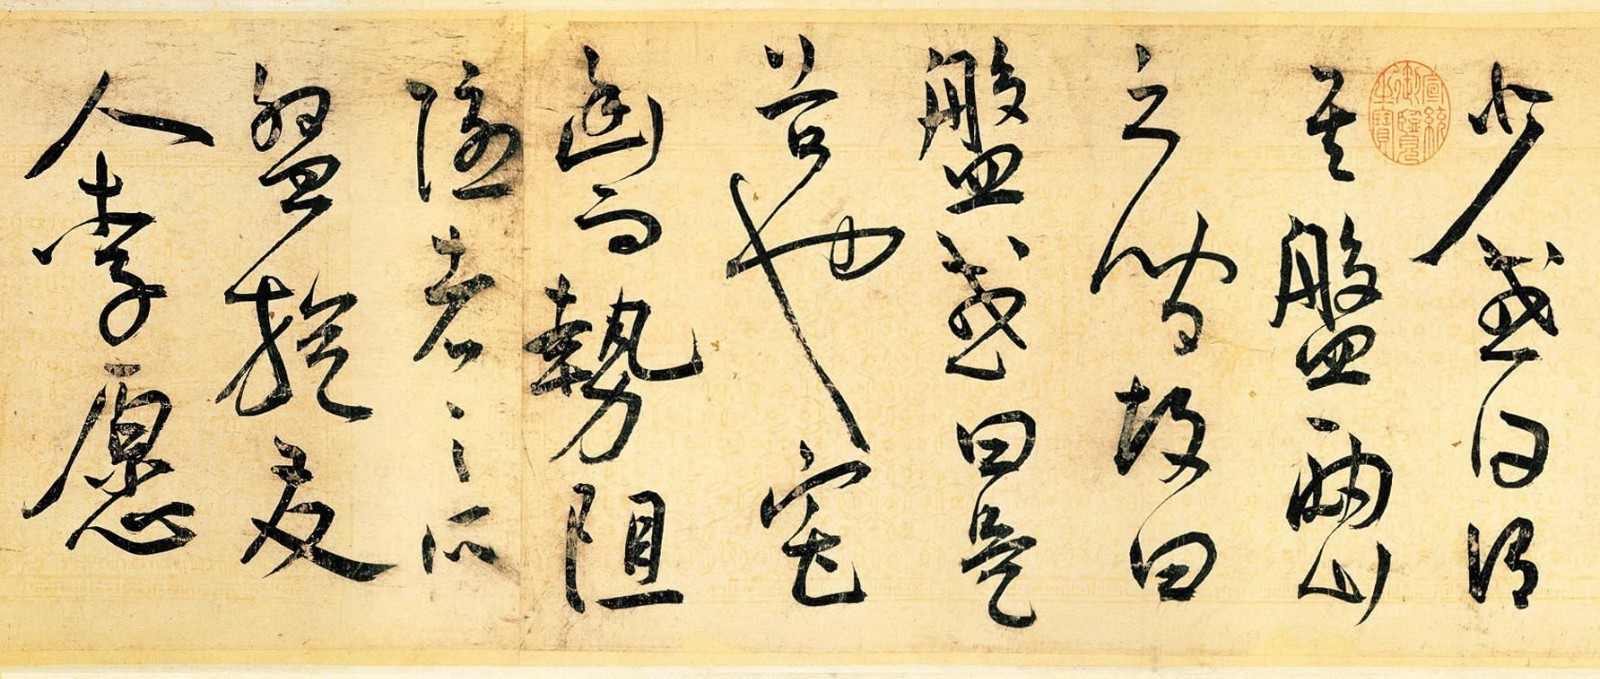 少或曰謂
其盤兩山
之間故曰
盤或曰是
谷也宅
幽而勢阻
隱者之所
盤旋友
人李愿
宣統御覽之寶